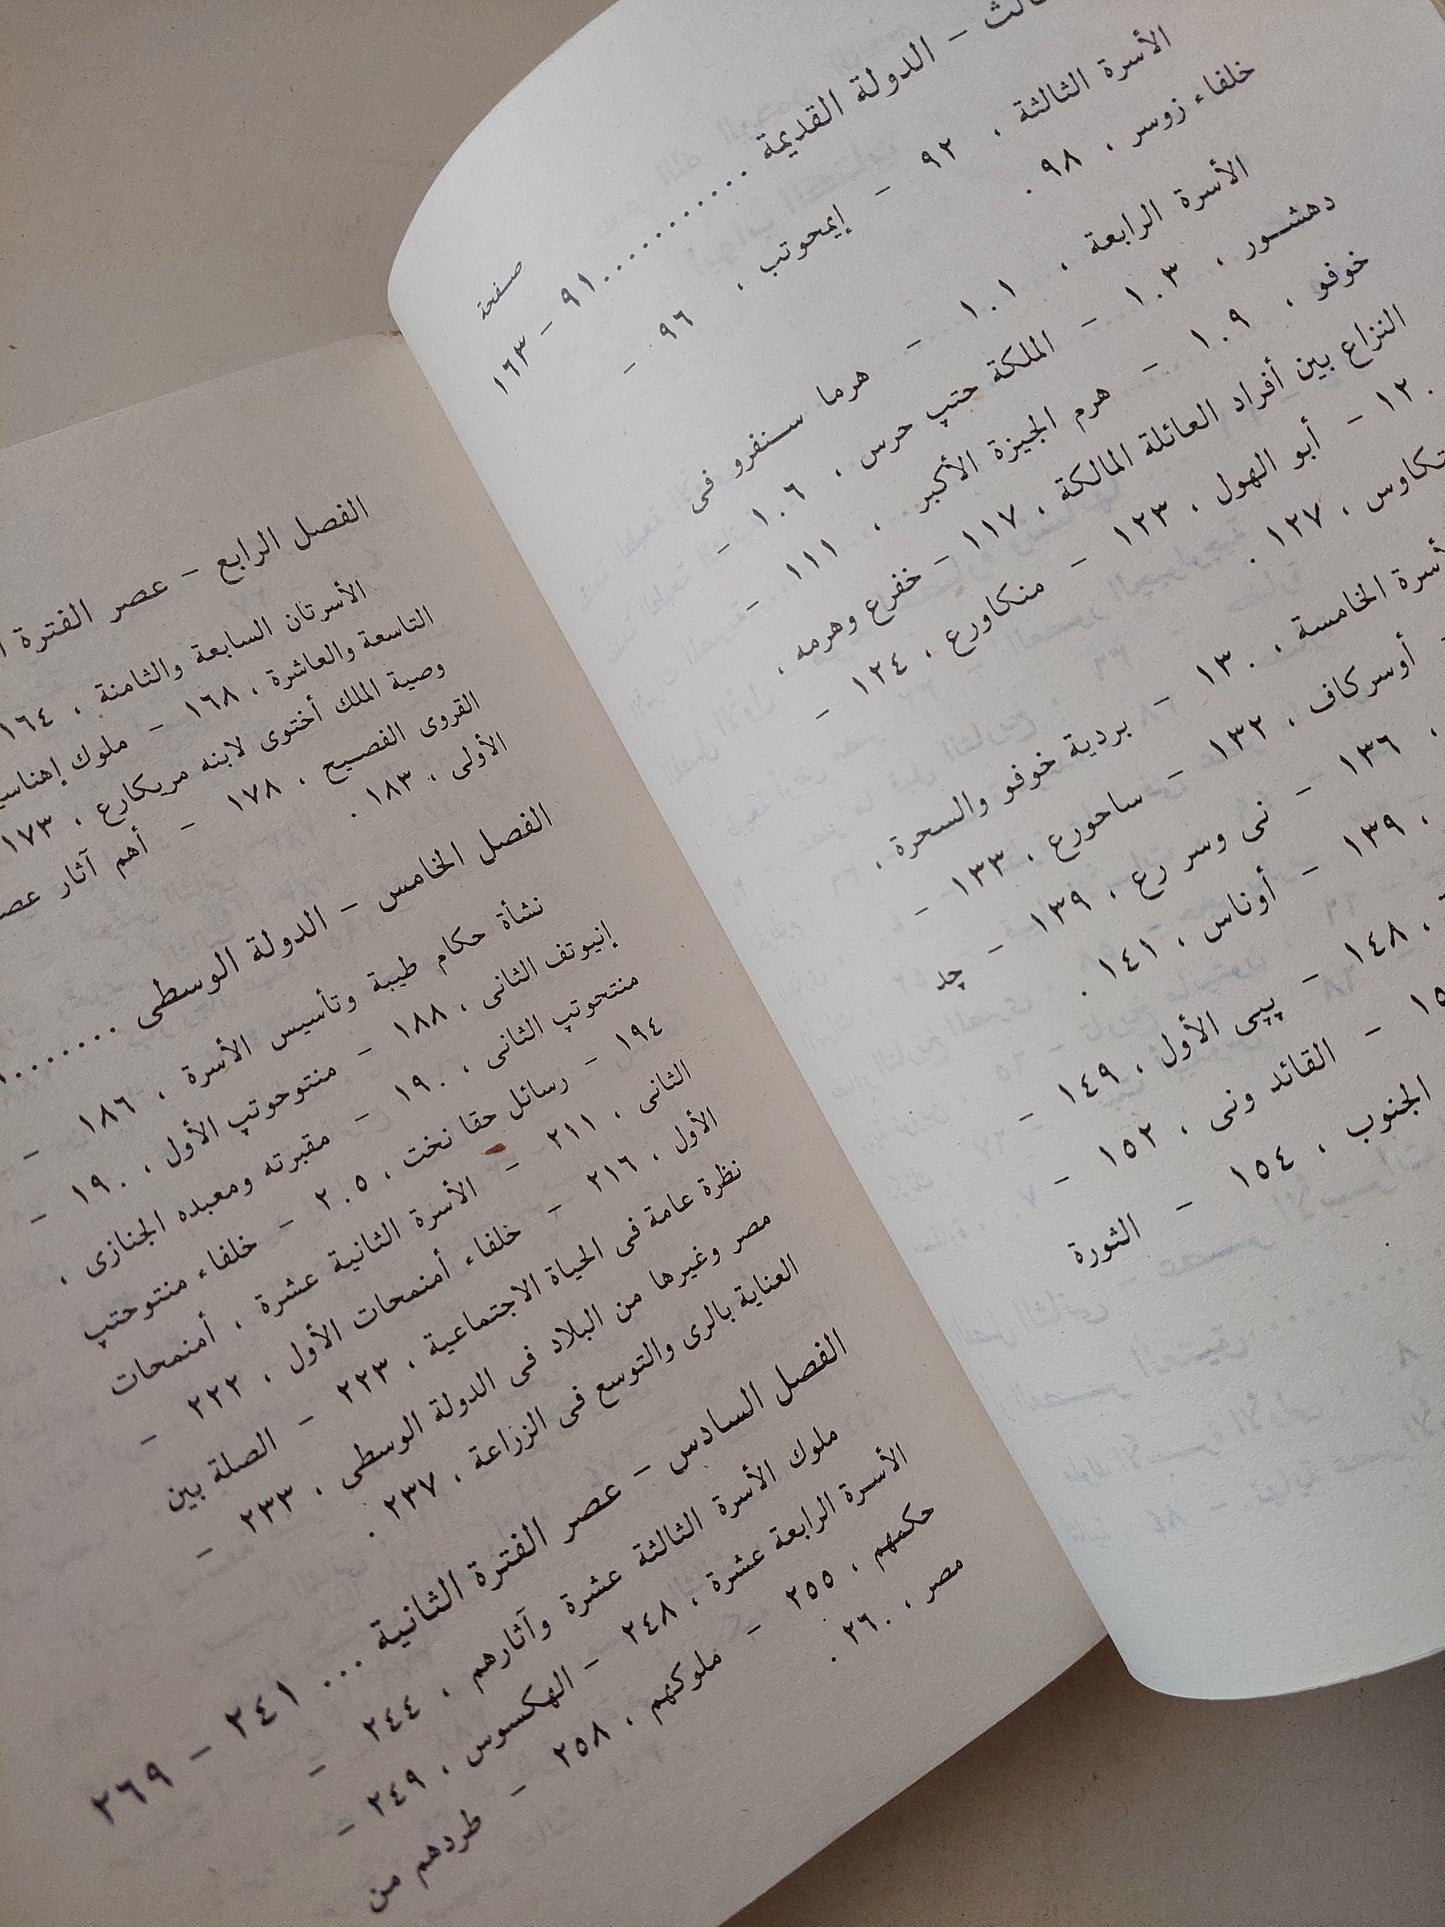 صفحة
الدولة القديمة ............ ٩١ – ١٦٣
الأسرة الثالثة ، ٩٢ – إيمحوتب ، ٩٦ –
خلفاء زوسر ، ٩٨ .
الأسرة الرابعة ، ١٠١ – هرما سنفرو فى
دهشور ، ١٠٣ – الملكة حتپ حرس ، ١٠٦ –
خوفو ، ١٠٩ – هرم الجيزة الأكبر ، ١١١ –
النزاع بين أفراد العائلة المالكة ، ١١٧ – خفرع وهرمه ،
١٢٠ – أبو الهول ، ١٢٣ – منكاورع ، ١٢٤ –
١٢٧ .
الخامسة ، ١٣٠ – بردية خوفو والسحرة ،
أوسركاف ، ١٣٢ – ساحورع ، ١٣٣ –
، ١٣٦ – نى وسر رع ، ١٣٩ – چد
، ١٣٩ – أوناس ، ١٤١ .
، ١٤٨ – پيپى الأول ، ١٤٩ –
– القائد ونى ، ١٥٢ –
الجنوب ، ١٥٤ – الثورة
الفصل الرابع – عصر الفترة
الأسرتان السابعة والثامنة ، ١٦٤
التاسعة والعاشرة ، ١٦٨ – ملوك
وصية الملك أختوى لابنه مريكارع ، ١٧٣
القروى الفصيح ، ١٧٨ – أهم آثار
الأولى ، ١٨٣ .
الفصل الخامس – الدولة الوسطى ........
نشأة حكام طيبة وتأسيس الأسرة ، ١٨٦ –
إنيوتف الثانى ، ١٨٨ – منتوحوتپ الأول ، ١٩٠ –
منتحوتپ الثانى ، ١٩٠ – مقبرته ومعبده الجنازى ،
١٩٤ – رسائل حقا نخت ، ٢٠٥ – خلفاء منتوحتپ
الثانى ، ٢١١ – الأسرة الثانية عشرة ، أمنمحات
الأول ، ٢١٦ – خلفاء أمنمحات الأول ، ٢٢٢ –
نظرة عامة فى الحياة الاجتماعية ، ٢٢٣ – الصلة بين
مصر وغيرها من البلاد فى الدولة الوسطى ، ٢٣٣ –
العناية بالرى والتوسع فى الزراعة ، ٢٣٧ .
الفصل السادس – عصر الفترة الثانية ... ٢٤١ – ٢٦٩
ملوك الأسرة الثالثة عشرة وآثارهم ، ٢٤٤ –
الأسرة الرابعة عشرة ، ٢٤٨ – الهكسوس ، ٢٤٩ –
حكمهم ، ٢٥٥ – ملوكهم ، ٢٥٨ – طردهم من
مصر ، ٢٦٠ .